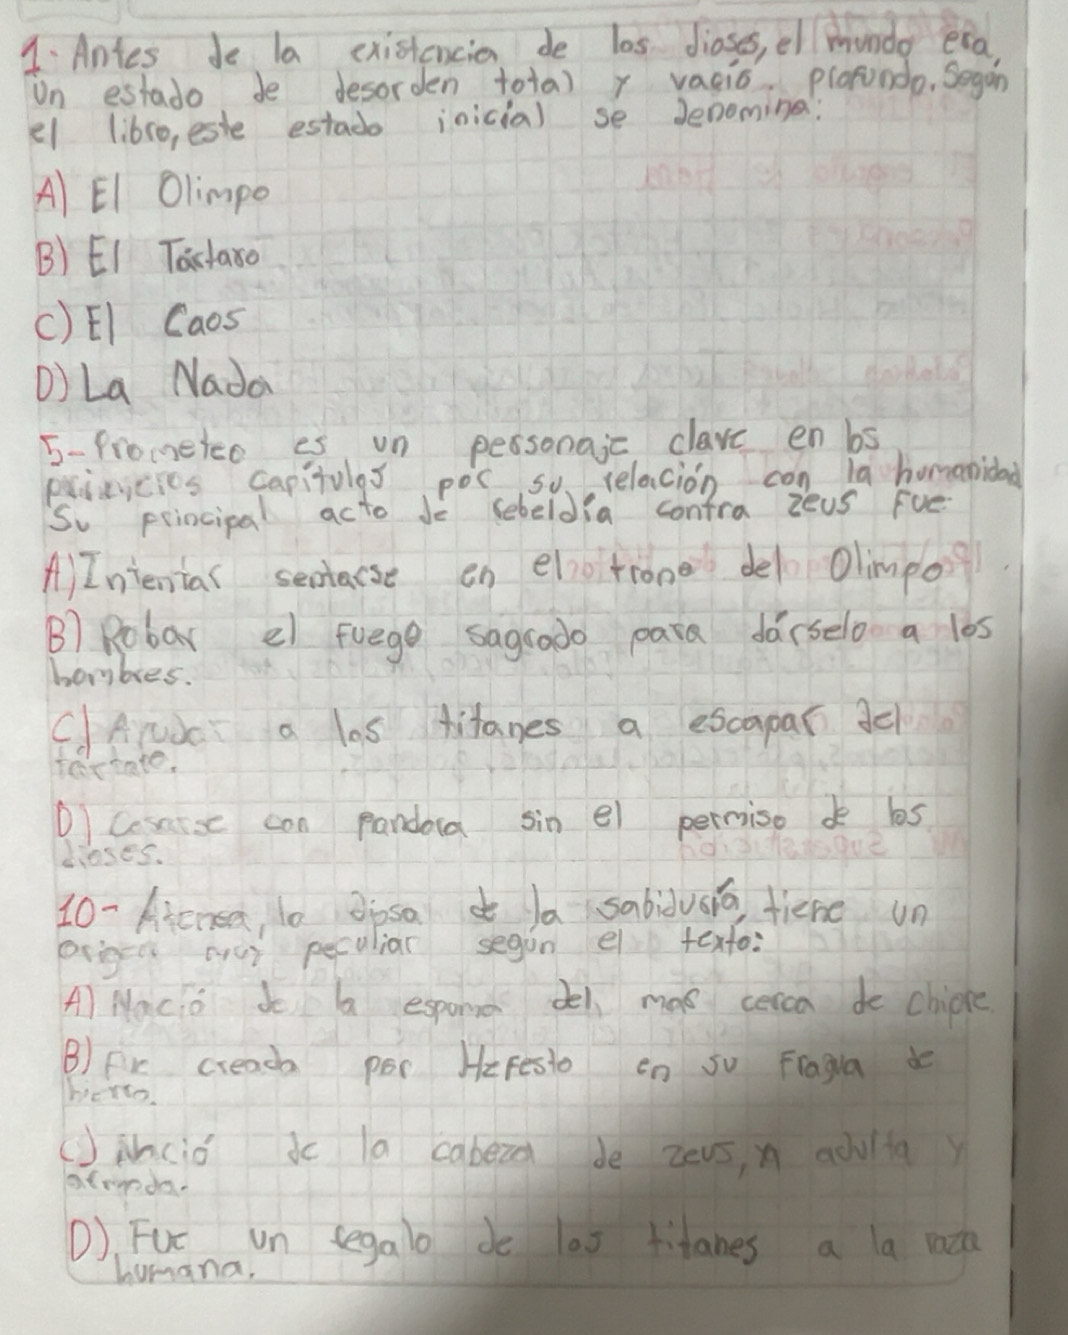 1. Antes de la existencia de los dioses, el mundo era,
Un estado de desorden total y vacio. profundo. Según
el libro, este estado inicial se denomina:
A) El Olimpo
B) El Tártaro
C) El Caos
D) La Nada
5- Prometeo es un personaje clave en los
principios capítulos por su relación con la humanidad
Su principal acto de rebeldía contra Zeus Fue:
A) Intentar sentarse en el trono del Olimpo
B) Robar el fuego sagrado para dárselo a los
hombres.
C) Ayudar a los titanes a escapar del
D) Casarse con Pandora sin el permiso de los
dioses.
10- Atenea, la diosa de la sabiduría, tiene un
origen muy peculiar según el texto:
A) Nació de la espoma del mar cerca de chipre
B) Fue creada por Hefesto en su Fragua de
hierro.
C) Nació de la cabeza de zeus, ya adulta y
armada.
D) Fue un regalo de los titanes a la raza
humana.